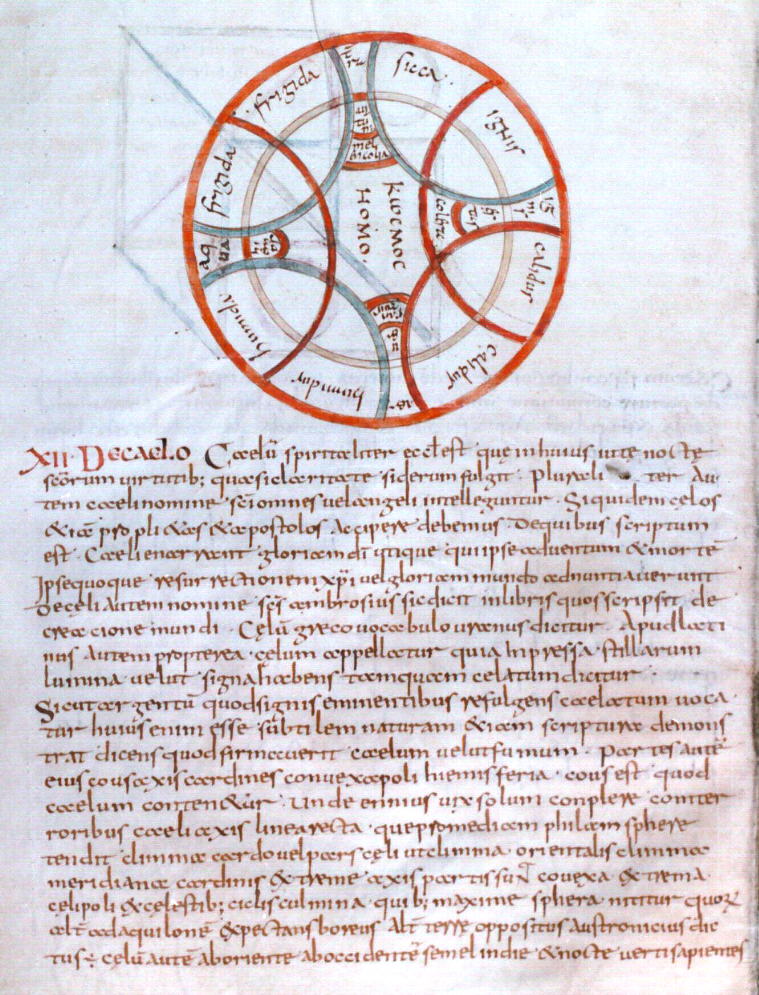 frigida
sicca
ignis
frigida
ΚωCΜΟC
HOMO.
calidus
aqua
calidus
humida
humidus
XII. DECAELO Cœlū spiritaliter eccl̄ est quę inhuius uite nocte
sc̄orum uirtutib; quasi claritate siderum fulgit. Pluraliter Au
tem caeli nomine sc̄i omnes uel angeli intelleguntur. Siquidem cęlos
& iā prophetas & apostolos Accipere debemus Dequibus scriptum
est. Caeli enarrant gloriam dī utique qui ipse aduentum & mortē
Ipse quoque resurrectionem xp̄i uel gloriam mundo adnuntiauerunt
Decęli Autem nomine sc̄s ambrosius sic dicit inlibris quos scripsit de
creacione mundi. Cęlū greco uocabulo uranus dicitur. Apud lati
nos Autem propterea cęlum appellatur quia Inpressa stillarum
lumina uelut signa habens tamquam celatum dicitur.
Sicut argentū quod signis eminentibus refulgens caelatum uoca
tur huius enim esse subtilem naturam & iam scriptura demons
trat dicens quod firmauerit caelum uelut fumum. Partes autē
eius couus axis cardines conuexa poli hiemisferia. couus est quod
caelum contenetur. Unde ennius uix solum conplere
roribus caeli axis linea recta que pro mediam philam sphere
tendit climma cardo uel pars cęli ut climma orientalis climma
meridiana cardinis extreme axis partis sunt couexa extrema
celi poli & celestib; ciclis culmina quib; maxime sphera nititur quorū
alt̄ ad aquilonē expectans boreus Alt̄ terre oppositus Austronicius dic
tus ē cęlū autē ab oriente ab occidentē semel indie & nocte uerti sapientes